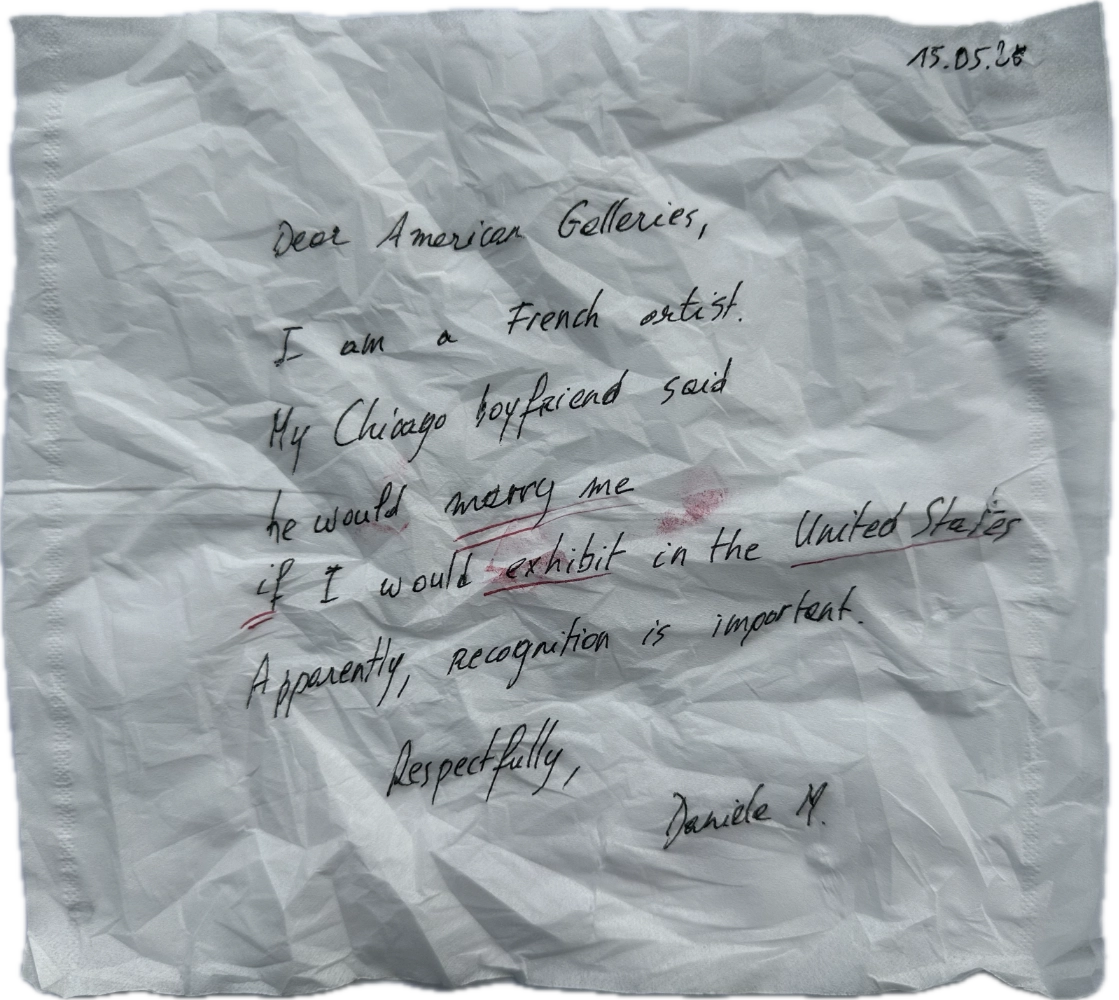 15.05.26
Dear American Galleries,
I am a French artist.
My Chicago boyfriend said
he would marry me
if I would exhibit in the United States
Apparently, recognition is important.
Respectfully,
Daniele M.